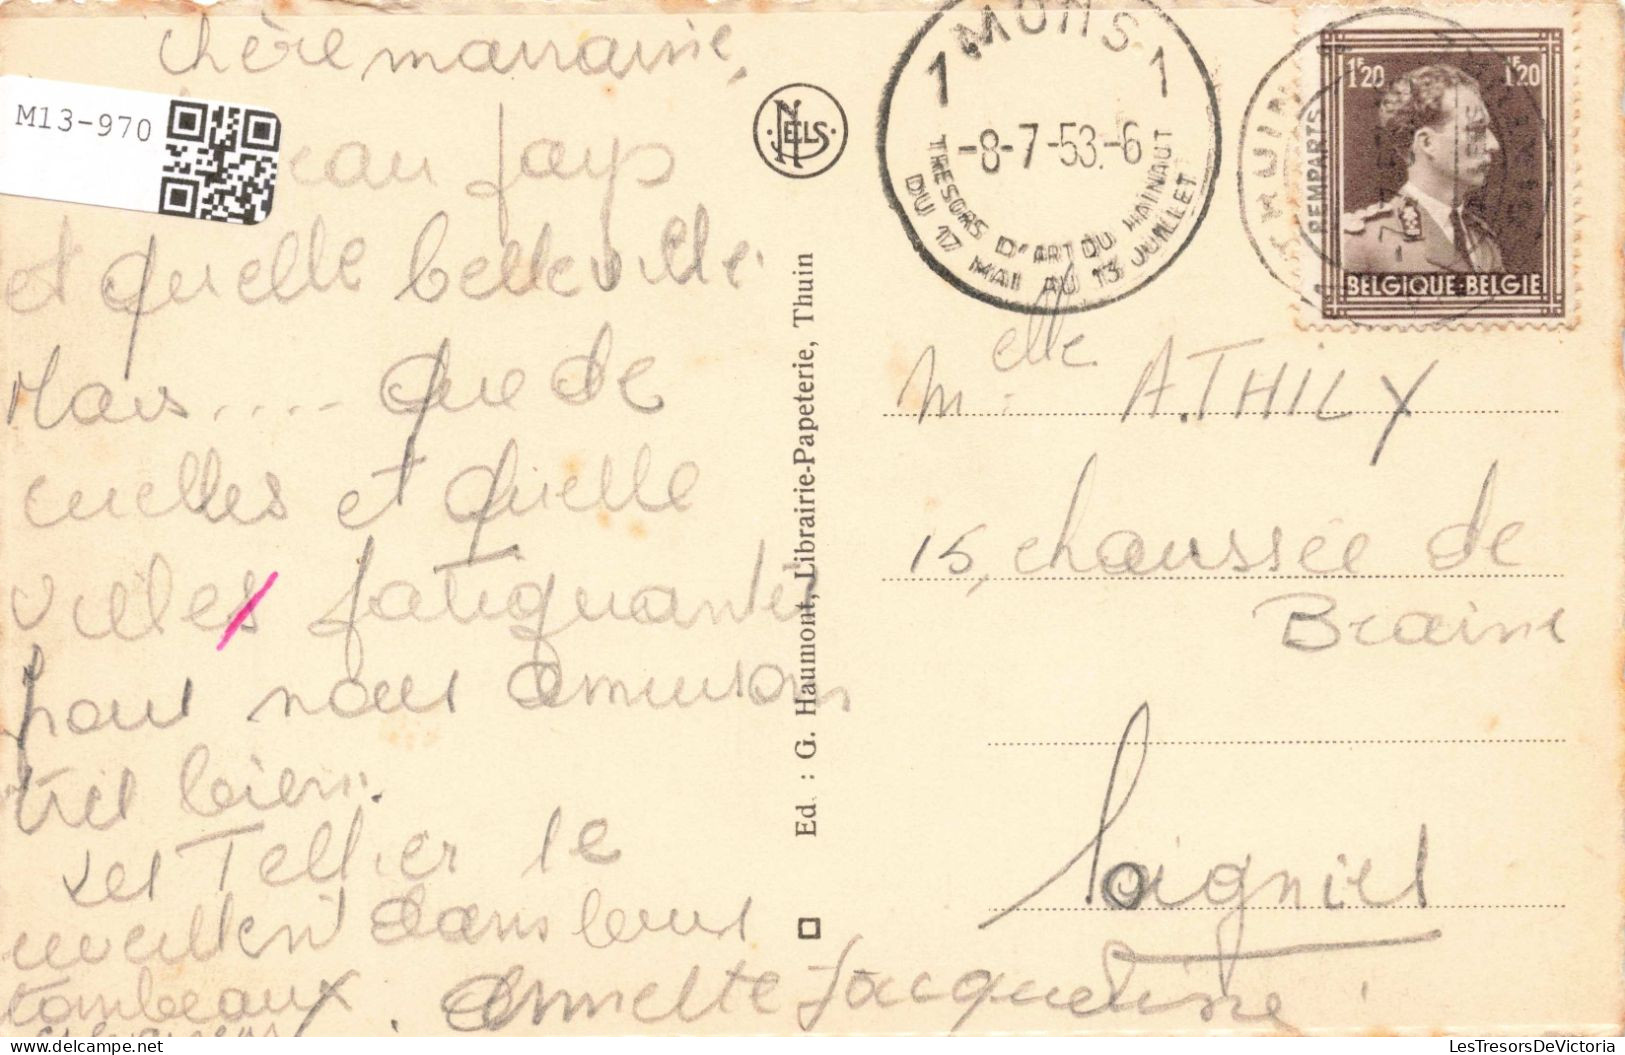 Chère marraine,
M13-970
eau pays
et quelle belle ville.
Mais .... que de
ruelles et quelle
villes fatiguantes
nous nous amusons
très bien.
Les Tellier se
réveillent dans leurs
tombeaux. Annette Jacqueline
NELS
Ed : G. Haumont, Librairie-Papeterie, Thuin
1 MONS 1
-8-7-53.-6
TRESORS D'ART DU HAINAUT
DU 17 MAI AU 13 JUILLET
THUIN
REMPARTS
1F20 1F20
BELGIQUE-BELGIE
Melle A. THILY
15, chaussée de
Braine
Soignies
LesTresorsDeVictoria